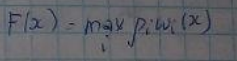 F(x) = max p_i w_i(x)
i